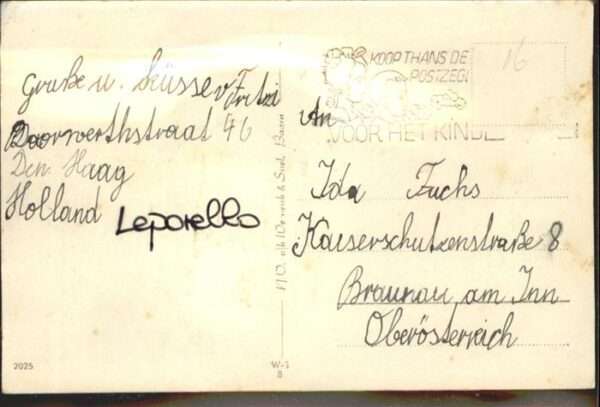 Gruße u. Küsse v. Fritzi
Doorwerthstraat 46
Den Haag
Holland
Leporello
2025
W-1
8
KOOP THANS DE
POSTZEG
VOOR HET KIND
16
An
Ida Fuchs
Kaiserschutzenstraße 8
Braunau am Inn
Oberösterreich